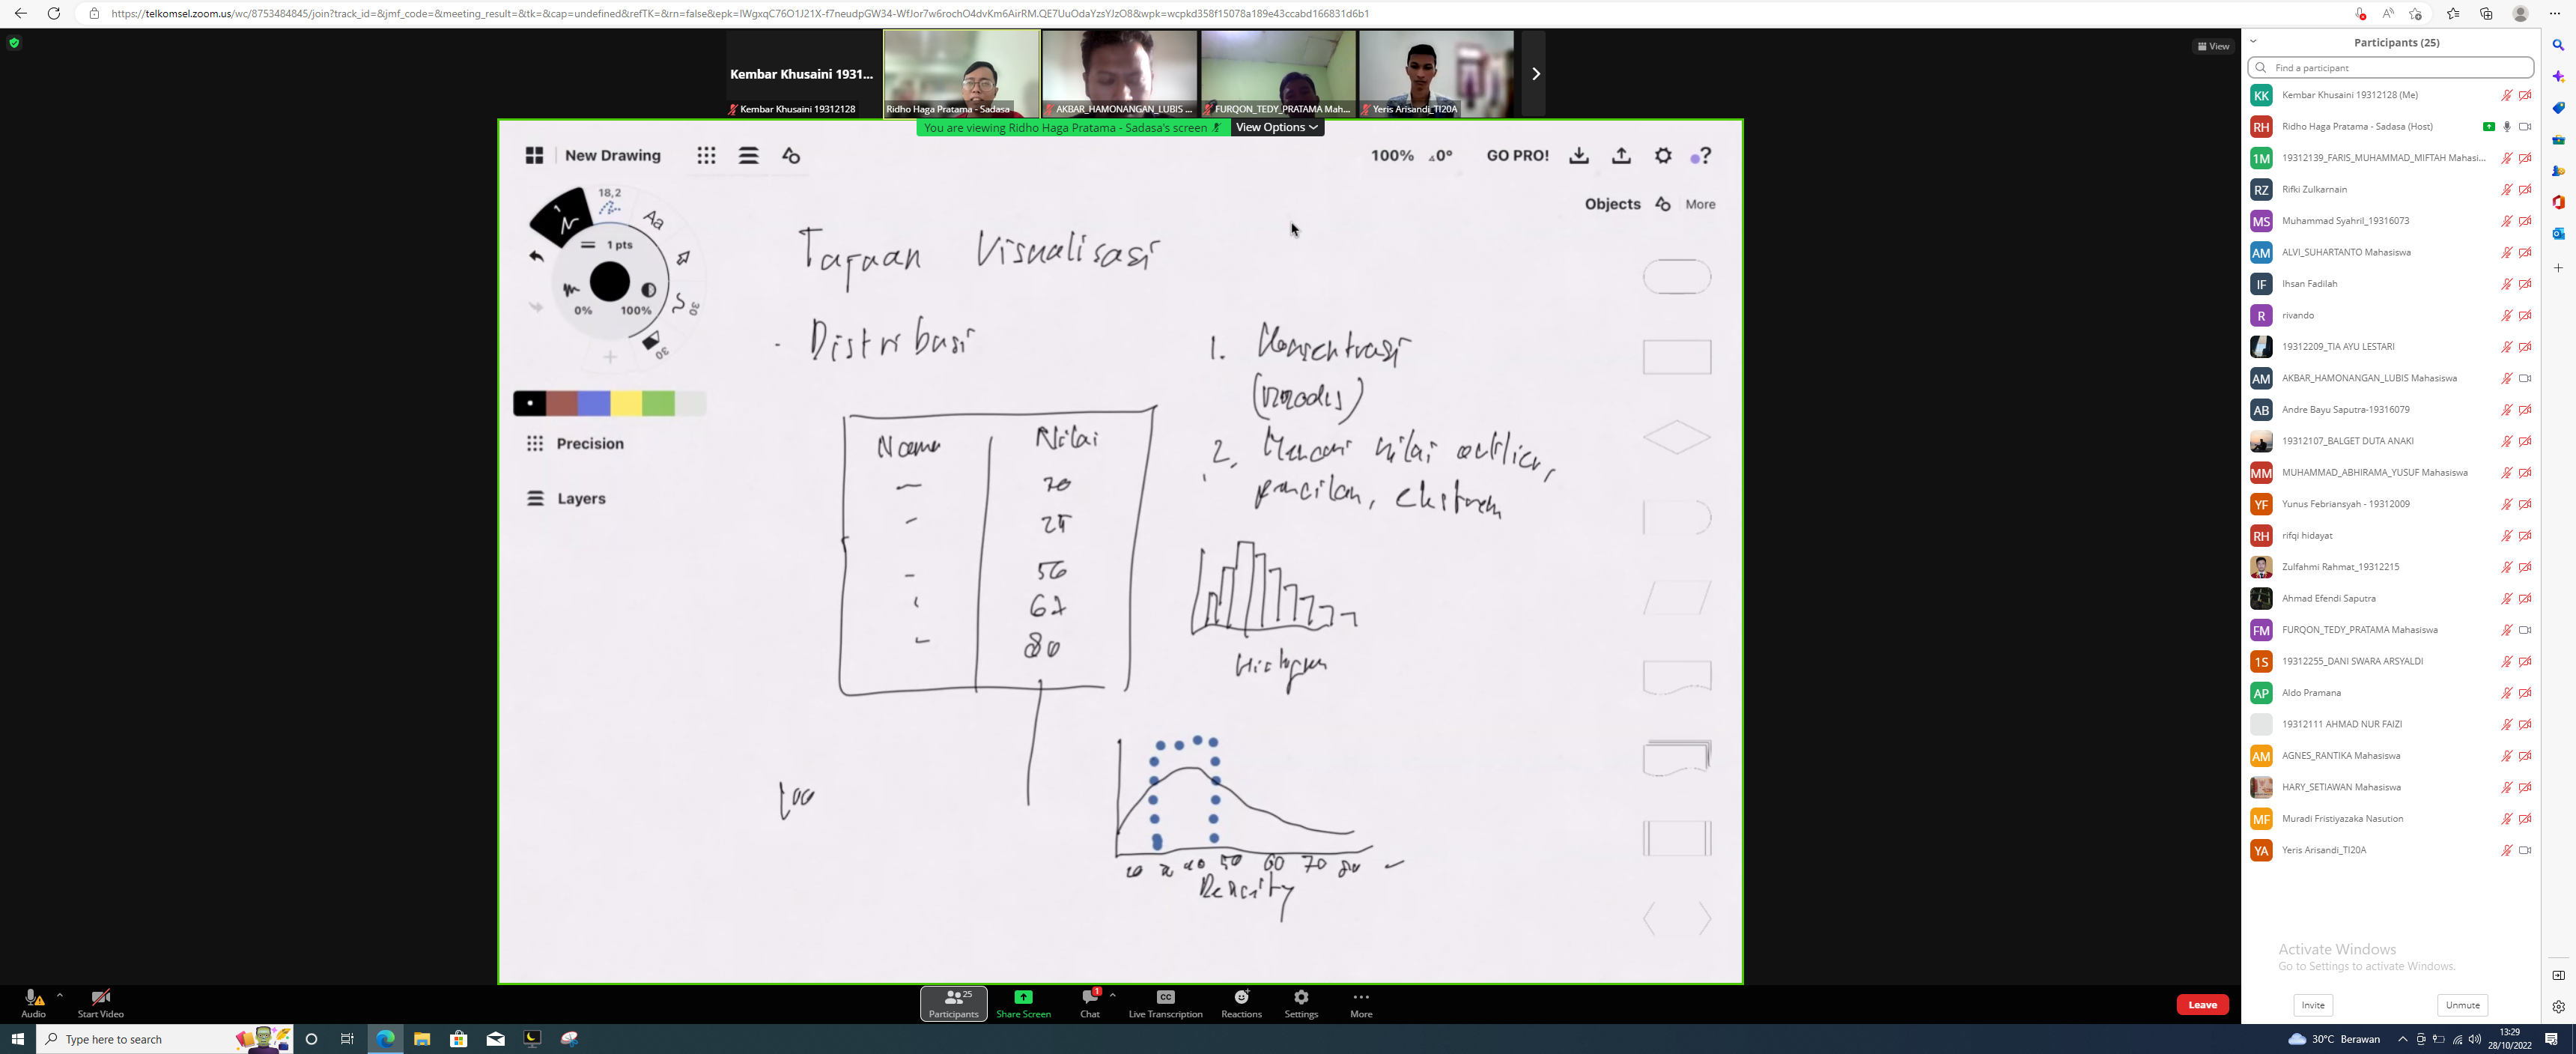 https://telkomsel.zoom.us/wc/8753484845/join?track_id=&jmf_code=&meeting_result=&tk=&cap=undefined&refTK=&rn=false&epk=
View
Kembar Khusaini 1931...
Kembar Khusaini 19312128
Ridho Haga Pratama - Sadasa
AKBAR_HAMONANGAN_LUBIS ...
FURQON_TEDY_PRATAMA Mah...
Yeris Arisandi_TI20A
You are viewing Ridho Haga Pratama - Sadasa's screen
View Options
New Drawing
100% 0° GO PRO! ?
Objects More
18,2
Aa
1
1 pts
0% 100%
30
30
Precision
Layers
Tujuan Visualisasi
- Distribusi
1. Konsentrasi
(modus)
2. Mencari nilai outlier,
pencilan, ekstrem
Nama Nilai
70
25
56
67
80
Histogram
50 60 70 80
Density
Participants (25)
Find a participant
KK Kembar Khusaini 19312128 (Me)
RH Ridho Haga Pratama - Sadasa (Host)
1M 19312139_FARIS_MUHAMMAD_MIFTAH Mahasi...
RZ Rifki Zulkarnain
MS Muhammad Syahril_19316073
AM ALVI_SUHARTANTO Mahasiswa
IF Ihsan Fadilah
R rivando
19312209_TIA AYU LESTARI
AM AKBAR_HAMONANGAN_LUBIS Mahasiswa
AB Andre Bayu Saputra-19316079
19312107_BALGET DUTA ANAKI
MM MUHAMMAD_ABHIRAMA_YUSUF Mahasiswa
YF Yunus Febriansyah - 19312009
RH rifqi hidayat
Zulfahmi Rahmat_19312215
Ahmad Efendi Saputra
FM FURQON_TEDY_PRATAMA Mahasiswa
1S 19312255_DANI SWARA ARSYALDI
AP Aldo Pramana
19312111 AHMAD NUR FAIZI
AM AGNES_RANTIKA Mahasiswa
HARY_SETIAWAN Mahasiswa
MF Muradi Fristiyazaka Nasution
YA Yeris Arisandi_TI20A
Activate Windows
Go to Settings to activate Windows.
Invite Unmute
Audio
Start Video
25
Participants
Share Screen
1
Chat
CC
Live Transcription
Reactions
Settings
More
Leave
Type here to search
30°C Berawan
13:29
28/10/2022